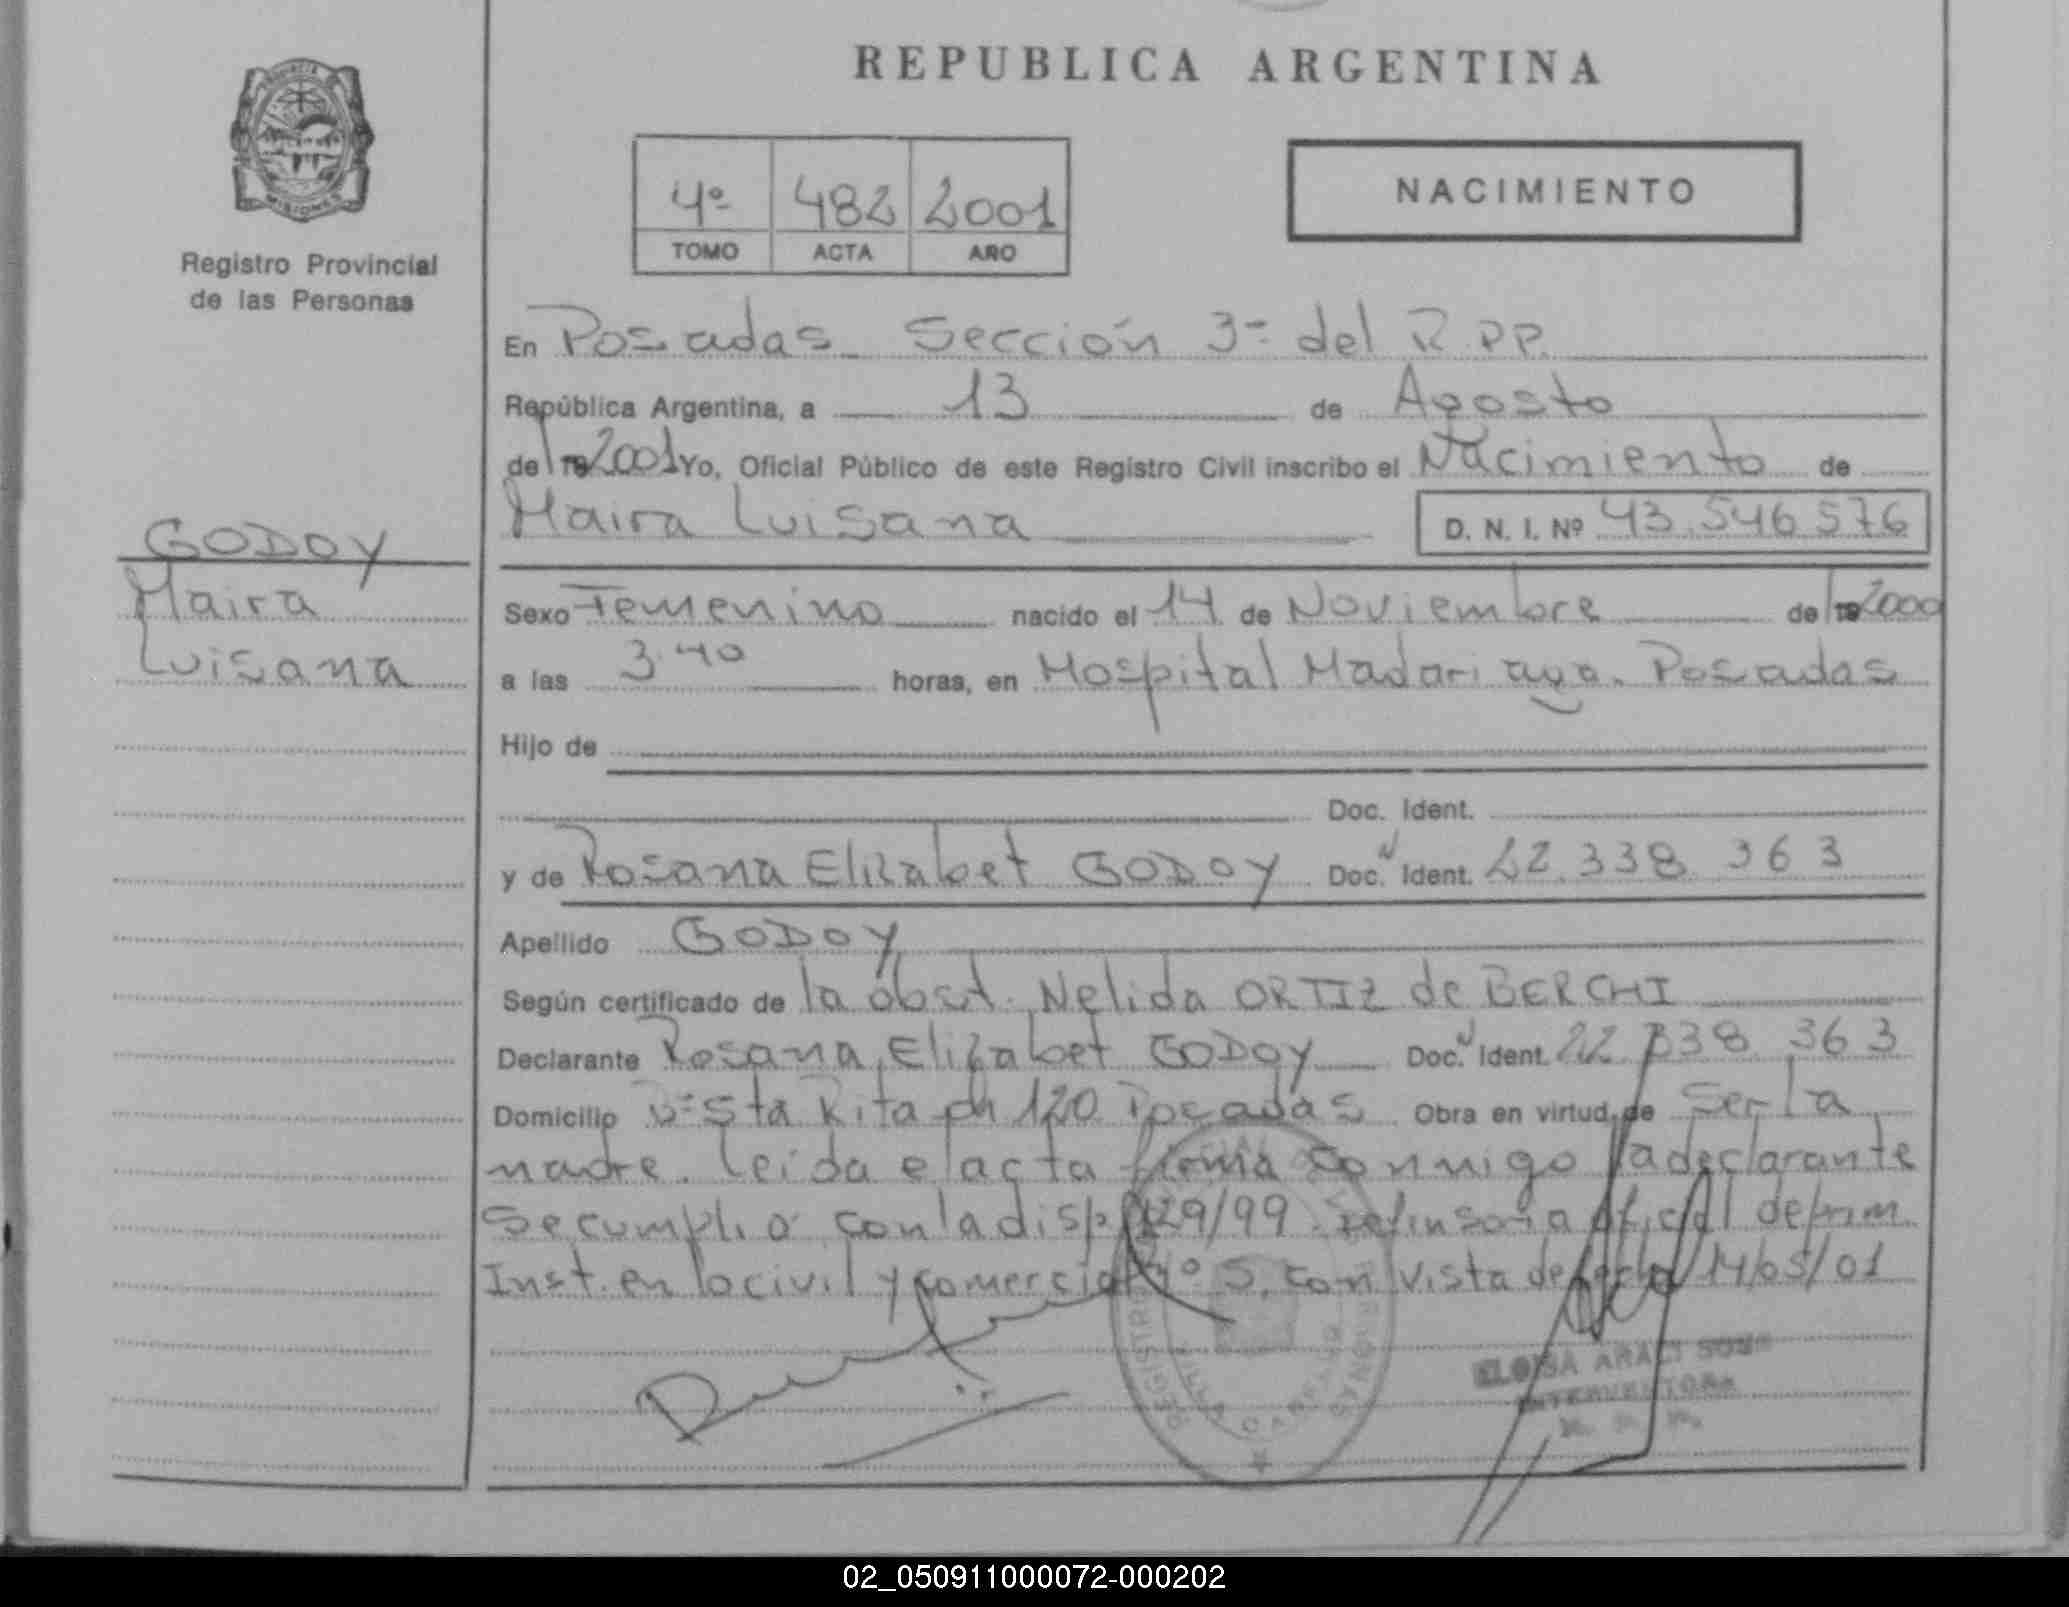 REPUBLICA ARGENTINA
PROVINCIA DE
MISIONES
Registro Provincial
de las Personas
4º 482 2001
TOMO ACTA AÑO
NACIMIENTO
En Posadas Sección 3ª del R.P.P.
República Argentina, a 13 de Agosto
de 19 2001 Yo, Oficial Público de este Registro Civil inscribo el Nacimiento de
Maira Luisana D. N. I. Nº 43.546.576
GODOY
Maira
Luisana
Sexo Femenino nacido el 14 de Noviembre de 19 2000
a las 3.40 horas, en Hospital Madariaga. Posadas
Hijo de
Doc. Ident.
y de Rosana Elizabet GODOY Doc. Ident. 22.338.363
Apellido GODOY
Según certificado de la obst. Nelida ORTIZ de BERCHI
Declarante Rosana Elizabet GODOY Doc. Ident. 22.338.363
Domicilio Bº Sta Rita ch 120 Posadas Obra en virtud de Ser la
madre. Leida el acta firma conmigo la declarante
Se cumplió con la disp. 129/99 oficial de prim.
Inst. en lo civil y comercial Nº 5, con vista de fecha 14/05/01
ELOISA ARACI
INTERVENTORA
02_050911000072-000202